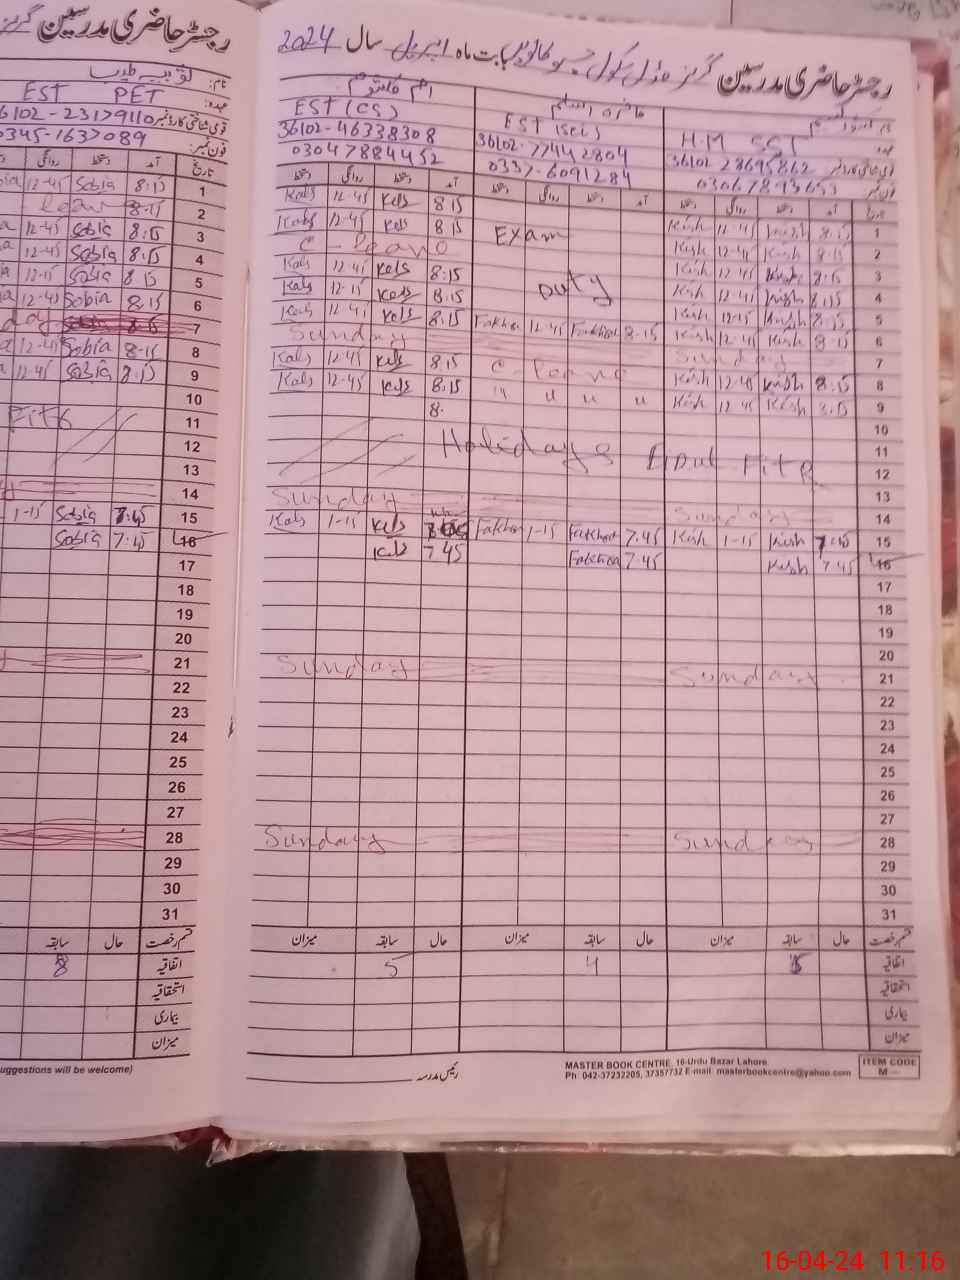 رجسٹر حاضری مدرسین گرلز
نام:
عہدہ: EST PET
قومی شناختی کارڈ نمبر 36102-23179110
فون نمبر: 0345-1637089
تاریخ آمد دستخط روانگی
1 8:15 Sobia 12-45
2 8-15 leave
3 8:15 Sobia 12-45
4 8:15 Sobia 12-45
5 8:15 Sobia 12-15
6 8.15 Sobia 12-45
7
8 8-15 Sobia 12-45
9 8:15 Sobia 12-45
10
11 Fitr
12
13
14
15 7:45 Sobia 1-15
16 7:45 Sobia
17
18
19
20
21
22
23
24
25
26
27
28
29
30
31
قسم رخصت حال سابقہ
اتفاقیہ 8
استحقاقیہ
بیماری
میزان
uggestions will be welcome)
رجسٹر حاضری مدرسین گرلز مڈل سکول بابت ماہ اپریل سال 2024
EST (CS) EST (Sci) H.M SST
36102-46338308 36102-77442804 36102-28695862
03047884452 0337-6091284 03067893653
دستخط روانگی دستخط آمد دستخط روانگی دستخط آمد دستخط روانگی دستخط آمد تاریخ
Kals 12-45 Kels 8.15 Kish 12-45 Kish 8:15 1
Kals 12-45 Kels 8.15 Exam Kish 12-45 Kish 8:15 2
C-leave Kish 12-45 Kish 8:15 3
Kals 12-45 Kels 8:15 Duty Kish 12-45 Kish 8:15 4
Kals 12-15 Kels 8:15 Kish 12-15 Kish 8:15 5
Kals 12-45 Kels 8:15 Fakhra 12-45 Fakhra 8-15 Kish 12-45 Kish 8-15 6
Sunday Sunday 7
Kals 12-45 Kels 8.15 C-leave Kish 12-45 Kish 8:15 8
Kals 12-45 Kels 8.15 " " " " Kish 12-45 Kish 8:15 9
8. 10
Holidays Eidul Fitr 11
12
13
Sunday Sunday 14
Kals 1-15 Kels Fakhra 1-15 Fakhra 7.45 Kish 1-15 Kish 7:45 15
Kels 7.45 Fakhra 7.45 Kish 7.45 16
17
18
19
20
Sunday Sunday 21
22
23
24
25
26
27
Sunday Sunday 28
29
30
31
میزان سابقہ حال میزان سابقہ حال میزان سابقہ حال قسم رخصت
5 4 اتفاقیہ
استحقاقیہ
بیماری
میزان
رئیس مدرسہ
MASTER BOOK CENTRE, 16-Urdu Bazar Lahore
Ph: 042-37232205, 37357732 E-mail: masterbookcentre@yahoo.com
ITEM CODE
M
16-04-24 11:16